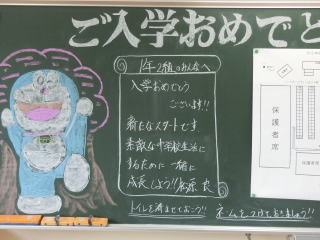 ご入学おめでと
1年2組のみんなへ
入学おめでとう
ございます!!
新たなスタートです
素敵な中学校生活に
するために一緒に
成長しよう!!
トイレを済ませておこう!!
ネームをつけておきましょう!!
保護者席